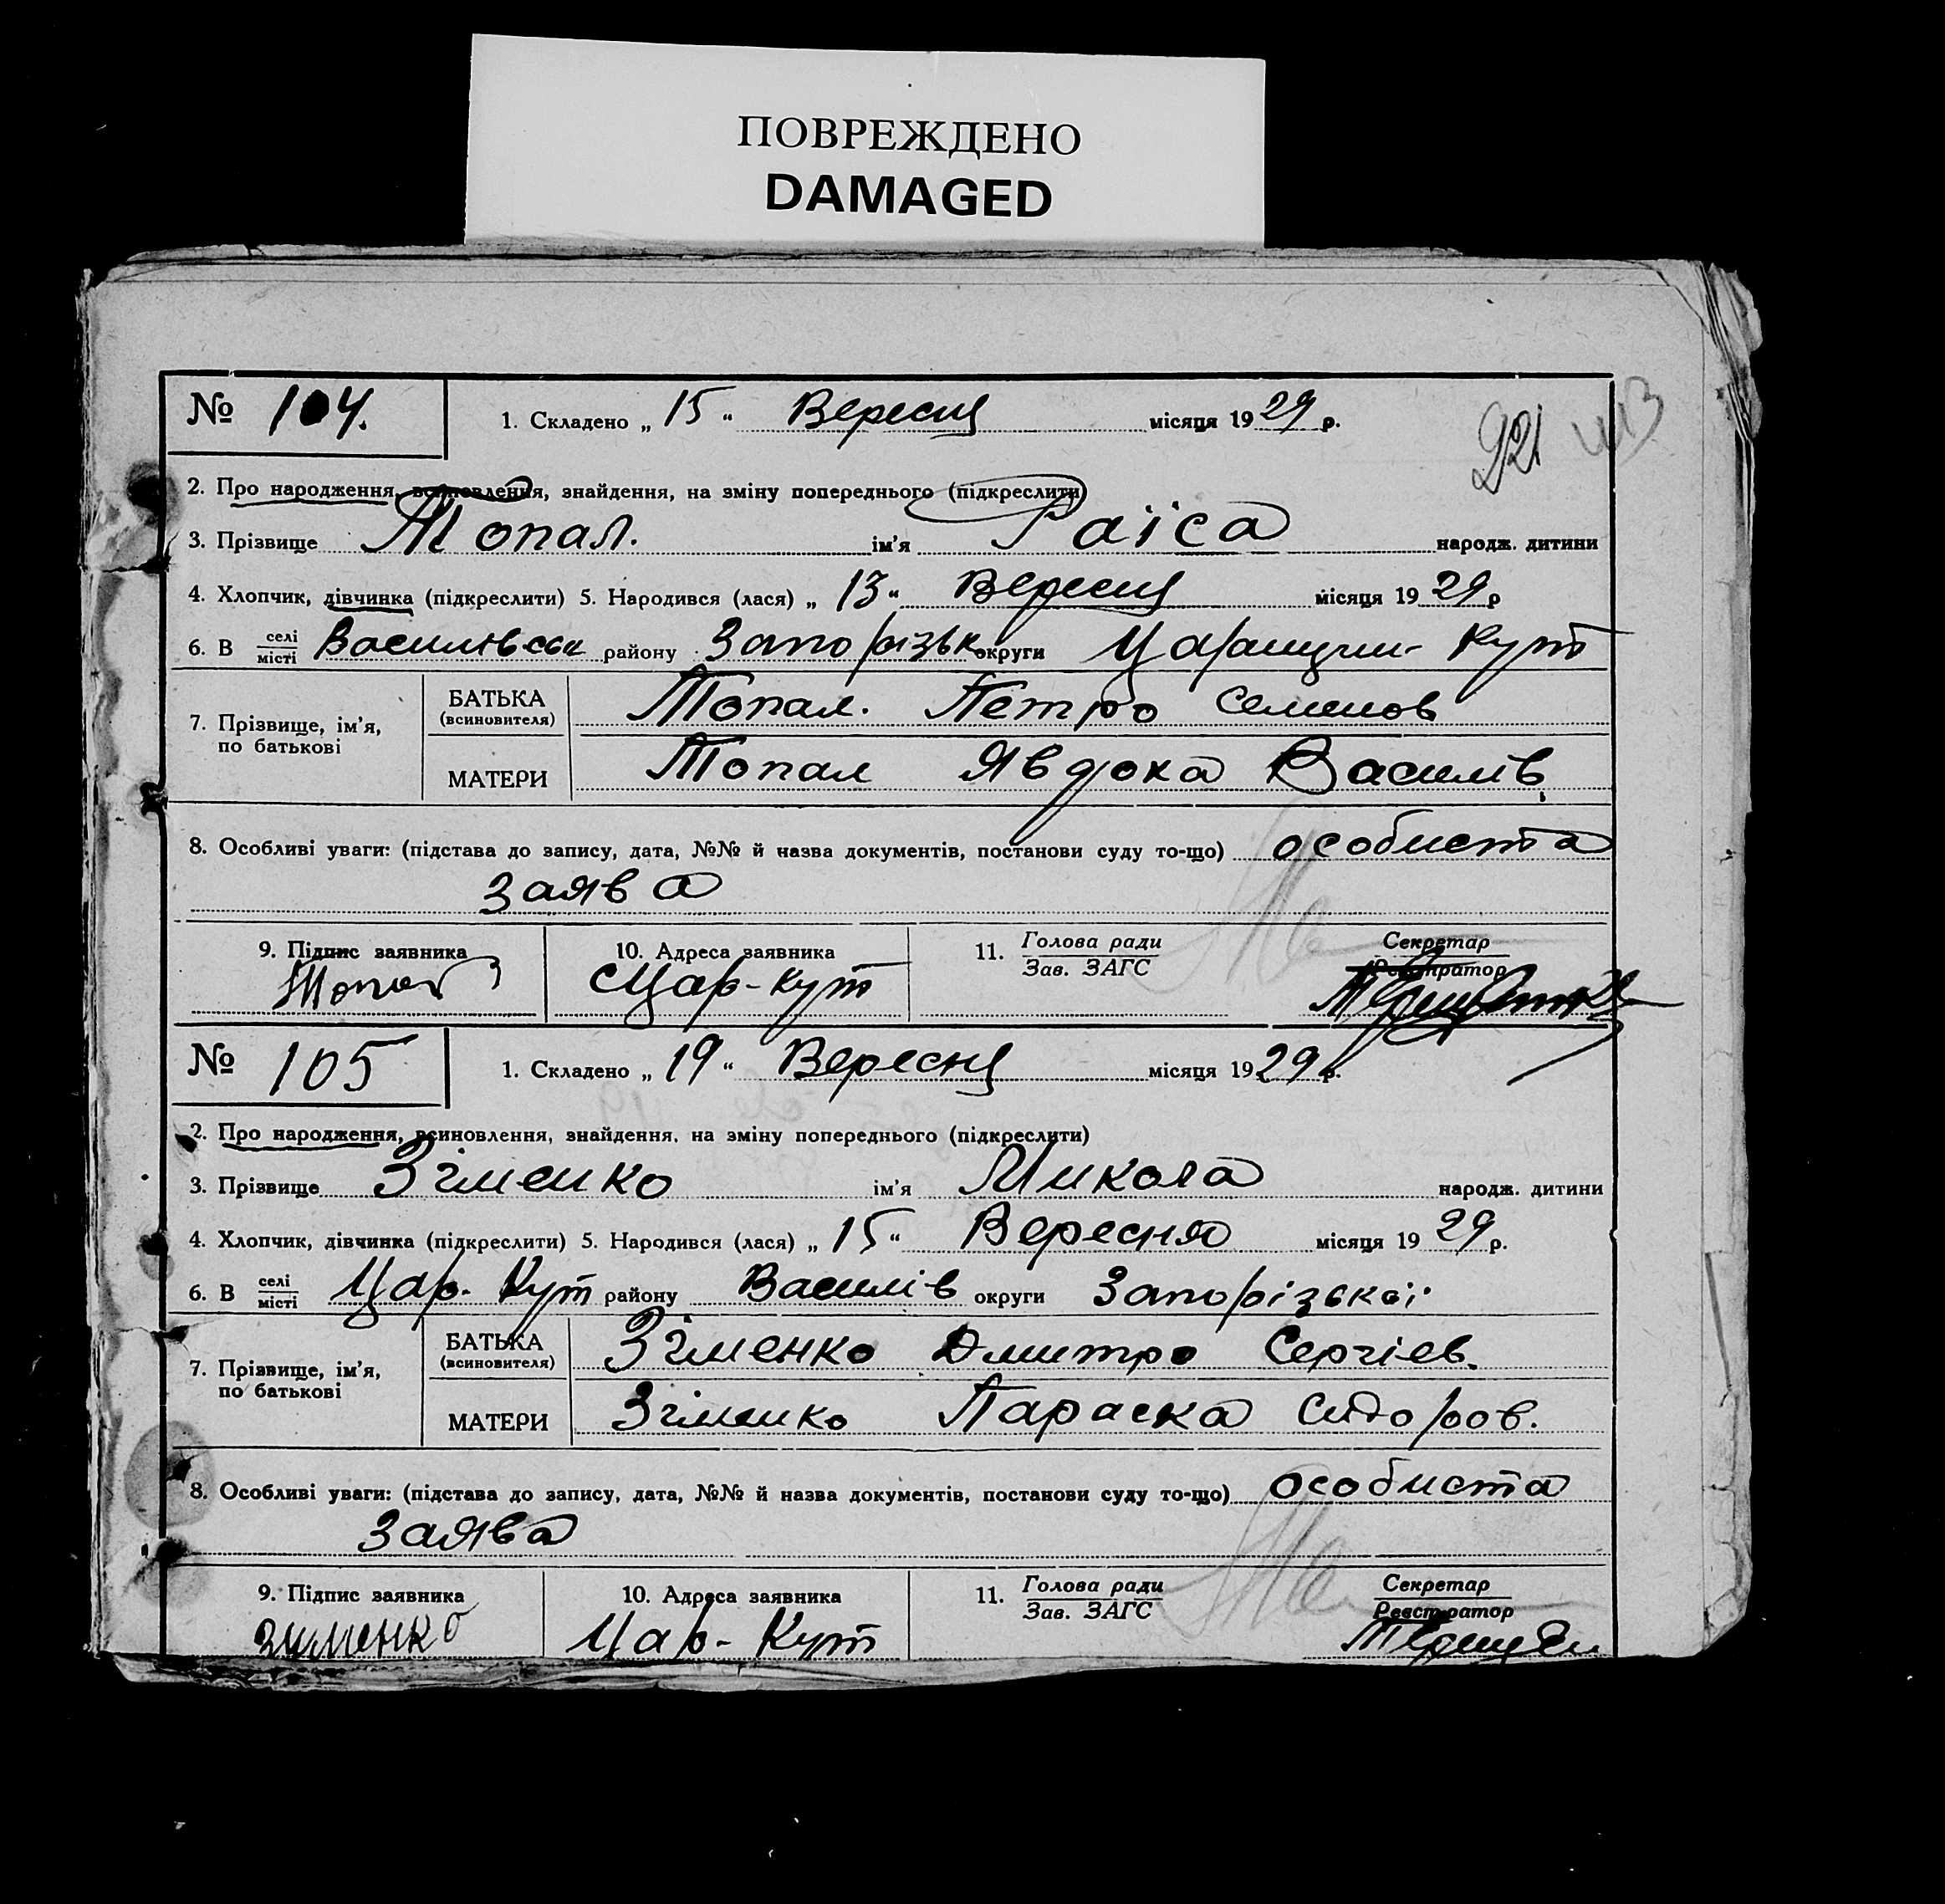 ПОВРЕЖДЕНО
DAMAGED
№ 104. 1. Складено „ 15 “ Вересня місяця 1929 р.
221
2. Про народження, всиновлення, знайдення, на зміну попереднього (підкреслити)
3. Прізвище Топал. ім'я Раїса народж. дитини
4. Хлопчик, дівчинка (підкреслити) 5. Народився (лася) „ 13 “ Вересня місяця 1929 р
6. В селі місті Василівськ району Запорізьк округи Царицин- Кут
7. Прізвище, ім'я, по батькові БАТЬКА (всиновителя) Топал. Петро Семенов
МАТЕРИ Топал Явдока Василів
8. Особливі уваги: (підстава до запису, дата, №№ й назва документів, постанови суду то-що) особиста
заява
9. Підпис заявника 10. Адреса заявника 11. Голова ради Зав. ЗАГС Секретар Реєстратор
Топал Цар-Кут
№ 105 1. Складено „ 19 “ Вересня місяця 1929 р.
2. Про народження, всиновлення, знайдення, на зміну попереднього (підкреслити)
3. Прізвище Зіменко ім'я Микола народж. дитини
4. Хлопчик, дівчинка (підкреслити) 5. Народився (лася) „ 15 “ Вересня місяця 1929 р.
6. В селі місті Цар. Кут району Василів округи Запорізької
7. Прізвище, ім'я, по батькові БАТЬКА (всиновителя) Зіменко Дмитро Сергієв.
МАТЕРИ Зіменко Параска Сидоров.
8. Особливі уваги: (підстава до запису, дата, №№ й назва документів, постанови суду то-що) особиста
заява
9. Підпис заявника 10. Адреса заявника 11. Голова ради Зав. ЗАГС Секретар Реєстратор
Зименко Цар- Кут